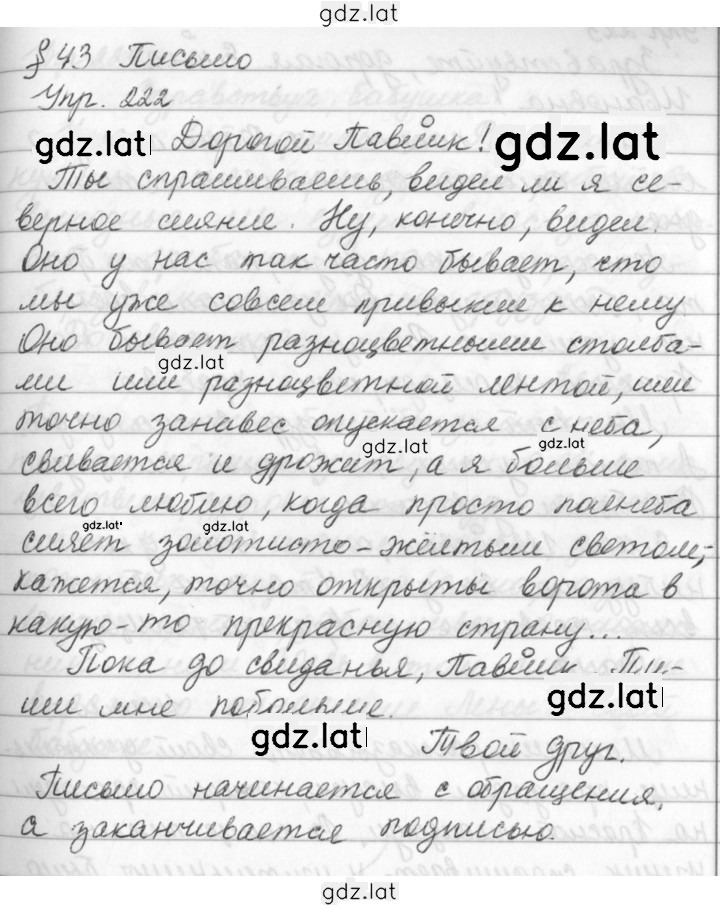 gdz.lat
§ 43 Письмо
Упр. 222
gdz.lat Дорогой Павлик! gdz.lat
Ты спрашиваешь, видел ли я се-
верное сияние. Ну, конечно, видел.
Оно у нас так часто бывает, что
мы уже совсем привыкли к нему
Оно бывает разноцветными столба-
gdz.lat
ми или разноцветной лентой, или
точно занавес опускается с неба,
gdz.lat gdz.lat
свивается и дрожит, а я больше
всего люблю, когда просто полнеба
gdz.lat gdz.lat
сияет золотисто-жёлтым светом,
кажется, точно открыты ворота в
какую-то прекрасную страну...
Пока до свиданья, Павлик. Пи-
ши мне побольше. gdz.lat
gdz.lat Твой друг.
Письмо начинается с обращения,
а заканчивается подписью.
gdz.lat